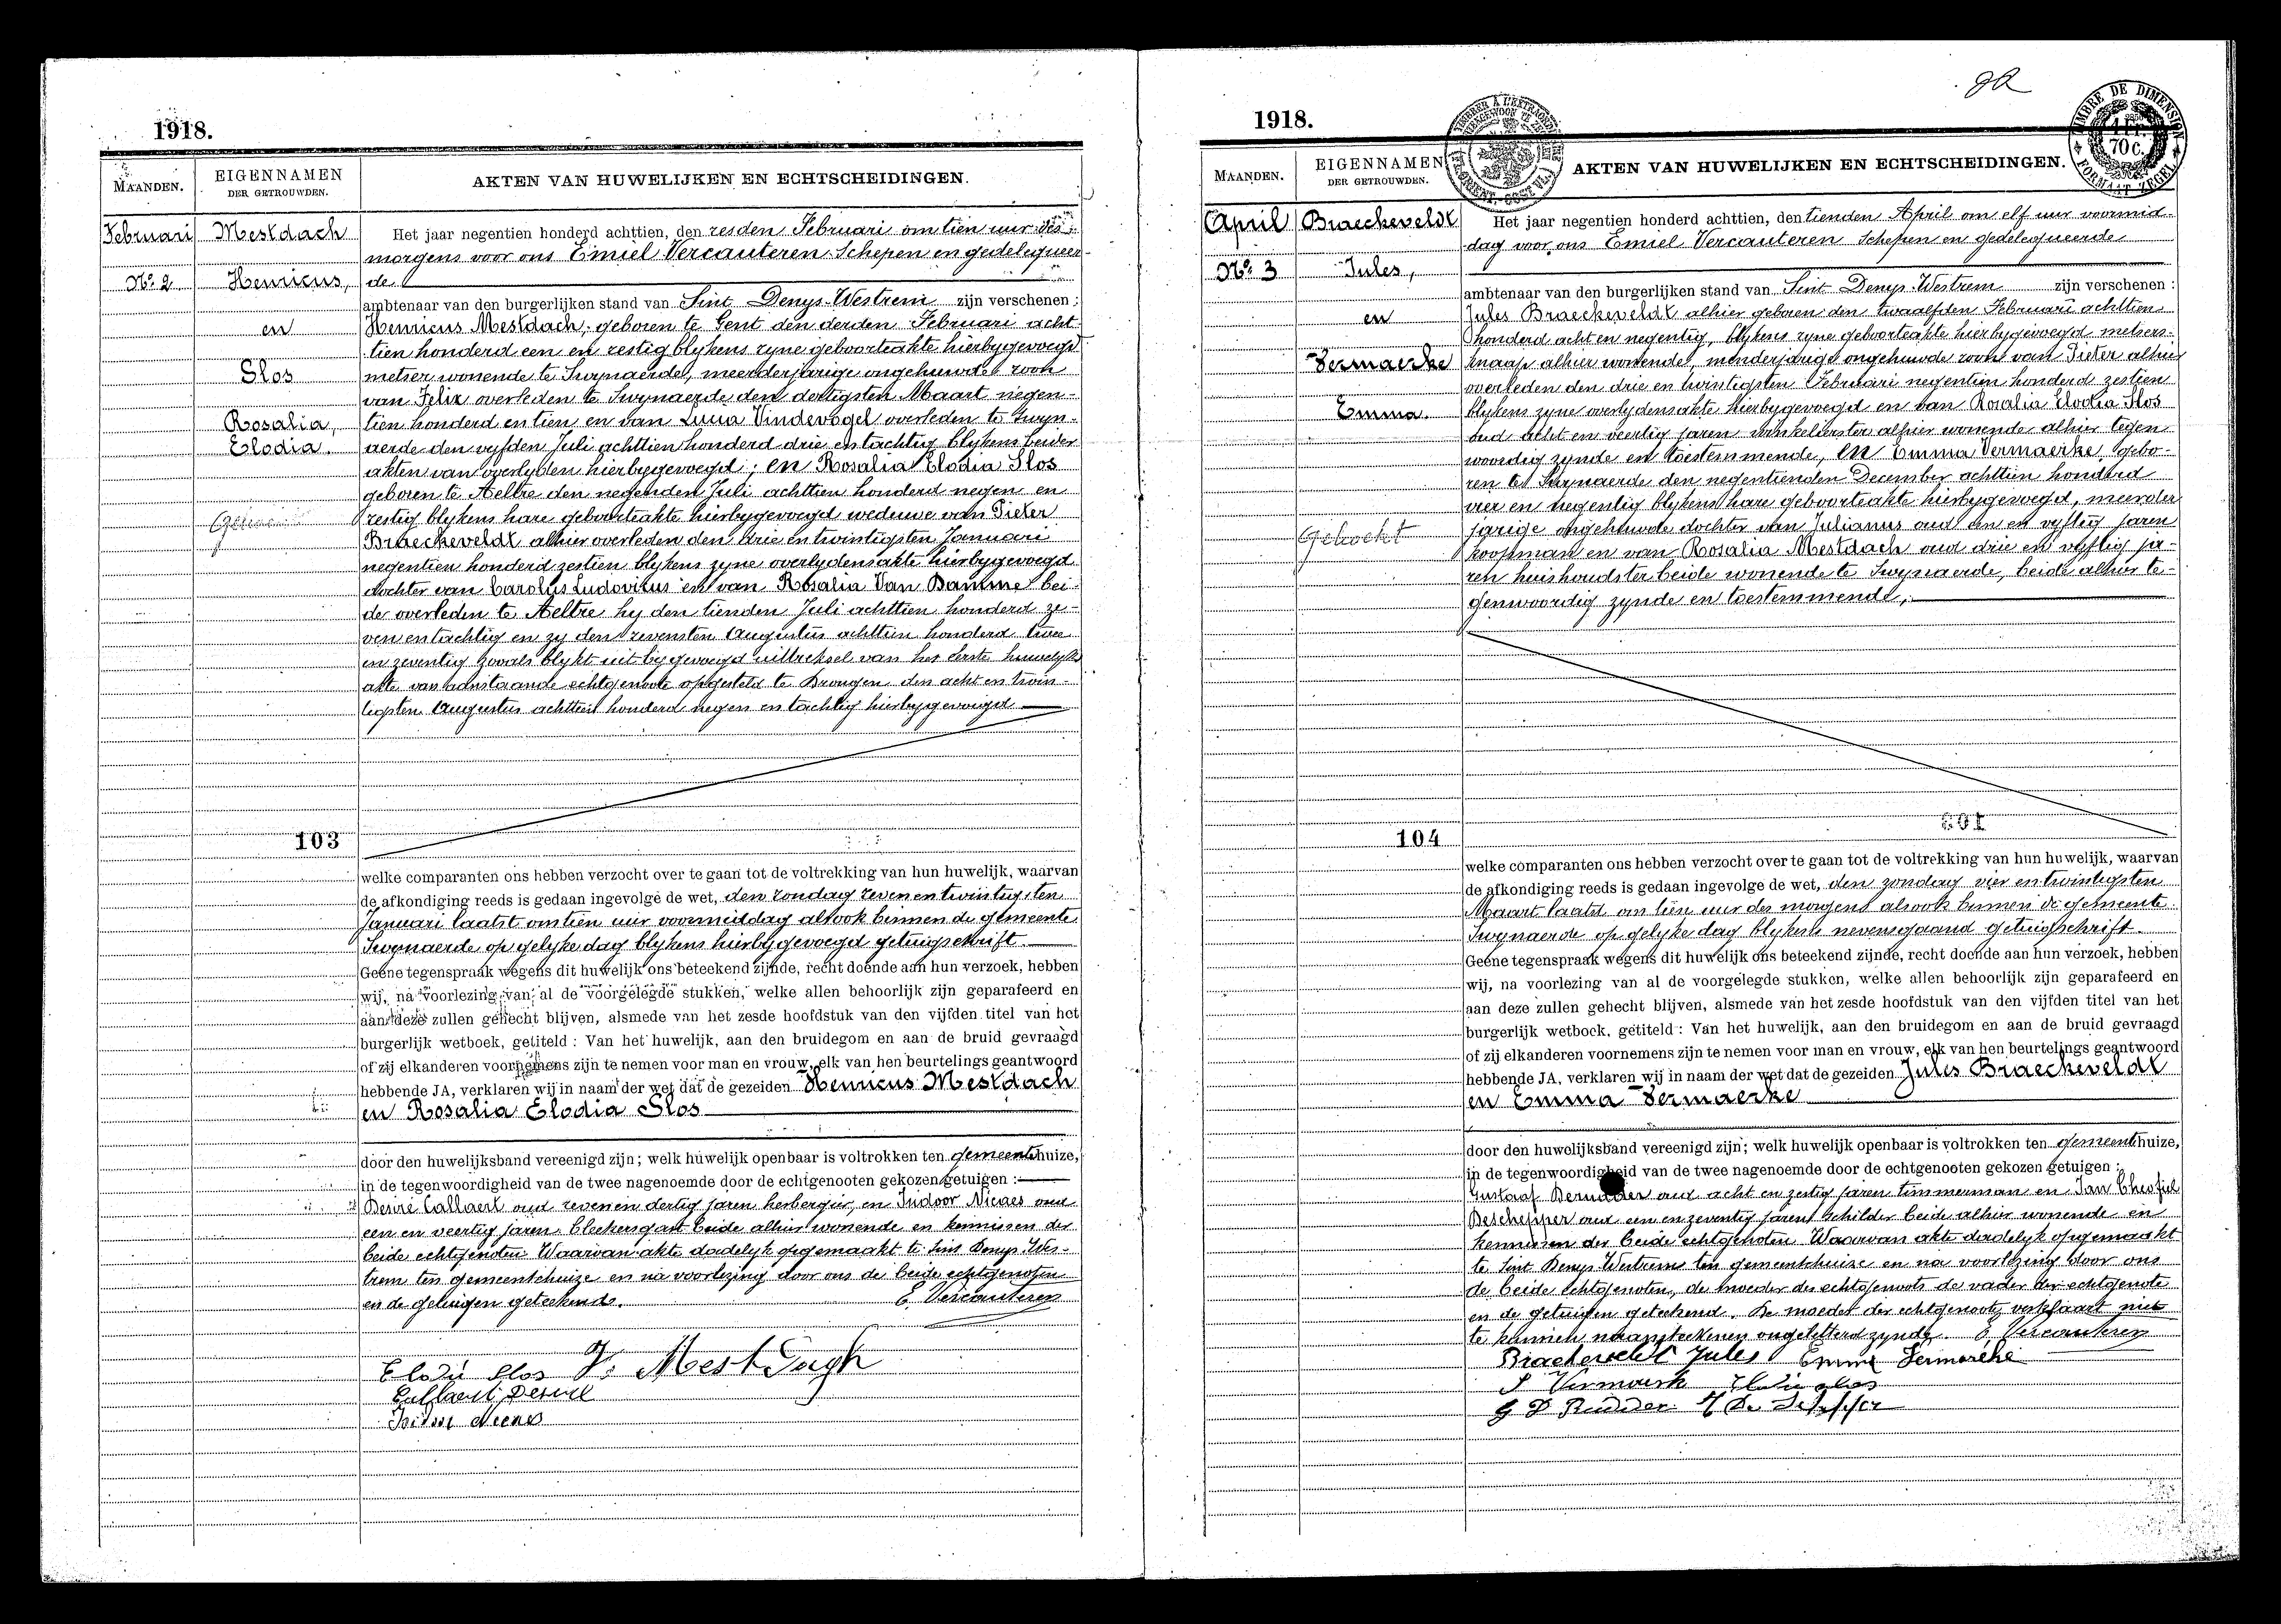 1918.
MAANDEN.
EIGENNAMEN
DER GETROUWDEN.
AKTEN VAN HUWELIJKEN EN ECHTSCHEIDINGEN.
Februari
No. 2
Mestdach
Henricus,
en
Slos
Rosalia,
Elodia.
103
Het jaar negentien honderd achttien, den zesden Februari om tien uur des
morgens voor ons Emiel Vercauteren Schepen en gedelegueer-
de
ambtenaar van den burgerlijken stand van Sint Denys-Westrem zijn verschenen :
Henricus Mestdach, geboren te Gent den derden Februari acht
tien honderd een en zestig blykens zyne geboorteakte hierbygevoegd
metser wonende te Swynaerde, meerderjarige ongehuwde zoon
van Felix overleden te Swynaerde den dertigsten Maart negen-
tien honderd en tien en van Lucia Vindevogel overleden te Swyn-
aerde den vyfden Juli achttien honderd drie en tachtig blykens beider
akten van overlyden hierbygevoegd; en Rosalia Elodia Slos
geboren te Aeltre den negenden Juli achttien honderd negen en
zestig blykens hare geboorteakte hierbygevoegd weduwe van Pieter
Braeckeveldt alhier overleden den drie en twintigsten Januari
negentien honderd zestien blykens zyne overlydensakte hierbygevoegd
dochter van Carolus Ludovicus en van Rosalia Van Damme bei-
de overleden te Aeltre hy den tienden Juli achttien honderd ze-
ven en tachtig en zy den zevensten Augustus achttien honderd twee
en zeventig zooals blykt uit bygevoegd uittreksel van het eerste huwelyks
akte van aanstaande echtgenoote opgesteld te Drongen den acht en twin-
tigsten Augustus achttien honderd negen en tachtig hierbygevoegd
welke comparanten ons hebben verzocht over te gaan tot de voltrekking van hun huwelijk, waarvan
de afkondiging reeds is gedaan ingevolge de wet, den zondag zeven en twintigsten
Januari laatst om tien uur voormiddag alsook binnen de gemeente
Swynaerde op gelyke dag blykens hierbygevoegd getuigschrift.
Geene tegenspraak wegens dit huwelijk ons beteekend zijnde, recht doende aan hun verzoek, hebben
wij, na voorlezing van al de voorgelegde stukken, welke allen behoorlijk zijn geparafeerd en
aan deze zullen gehecht blijven, alsmede van het zesde hoofdstuk van den vijfden titel van het
burgerlijk wetboek, getiteld : Van het huwelijk, aan den bruidegom en aan de bruid gevraagd
of zij elkanderen voornemens zijn te nemen voor man en vrouw, elk van hen beurtelings geantwoord
hebbende JA, verklaren wij in naam der wet dat de gezeiden Henricus Mestdach
en Rosalia Elodia Slos
door den huwelijksband vereenigd zijn; welk huwelijk openbaar is voltrokken ten gemeentehuize,
in de tegenwoordigheid van de twee nagenoemde door de echtgenooten gekozen getuigen :
Desiré Callaert oud zeven en dertig jaren herbergier, en Isidoor Nicaes oud
een en veertig jaren bleekersgast beide alhier wonende en kennissen der
beide echtgenoten. Waarvan akte dadelyk opgemaakt te Sint Denys-Wes-
trem ten gemeentehuize en na voorlezing door ons de beide echtgenoten
en de getuigen geteekend.
E. Vercauteren
Elodie Slos
Mestdagh
Callaert Desiré
1918.
MAANDEN.
EIGENNAMEN
DER GETROUWDEN.
AKTEN VAN HUWELIJKEN EN ECHTSCHEIDINGEN.
TIMBRE DE DIMENSION
70 C.
FORMAAT ZEGEL
April
No. 3
Braeckeveldt
Jules,
en
Vermaerke
Emma.
Gekocht
104
Het jaar negentien honderd achttien, den tienden April om elf uur voormid-
dag voor ons Emiel Vercauteren Schepen en gedelegueerde
ambtenaar van den burgerlijken stand van Sint Denys-Westrem zijn verschenen :
Jules Braeckeveldt alhier geboren den twaalfden Februari achttien
honderd acht en negentig, blykens zyne geboorteakte hierbygevoegd metsers-
knaap alhier wonende, minderjarige ongehuwde zoon van Pieter alhier
overleden den drie en twintigsten Februari negentien honderd zestien
blykens zyne overlydensakte hierbygevoegd en van Rosalia Elodia Slos
oud acht en veertig jaren winkelierster alhier wonende alhier tegen
woordig zynde en toestemmende, en Emma Vermaerke gebo-
ren te Swynaerde den negentienden December achttien honderd
vier en negentig blykens hare geboorteakte hierbygevoegd, meerder
jarige ongehuwde dochter van Julianus oud een en vyftig jaren
koopman en van Rosalia Mestdach oud drie en vyftig ja-
ren huishoudster beide wonende te Swynaerde, beide alhier te-
genwoordig zynde en toestemmende,
welke comparanten ons hebben verzocht over te gaan tot de voltrekking van hun huwelijk, waarvan
de afkondiging reeds is gedaan ingevolge de wet, den zondag vier en twintigsten
Maart laatst om tien uur des morgens alsook binnen de gemeente
Swynaerde op gelyke dag blykens nevensgaand getuigschrift.
Geene tegenspraak wegens dit huwelijk ons beteekend zijnde, recht doende aan hun verzoek, hebben
wij, na voorlezing van al de voorgelegde stukken, welke allen behoorlijk zijn geparafeerd en
aan deze zullen gehecht blijven, alsmede van het zesde hoofdstuk van den vijfden titel van het
burgerlijk wetboek, getiteld : Van het huwelijk, aan den bruidegom en aan de bruid gevraagd
of zij elkanderen voornemens zijn te nemen voor man en vrouw, elk van hen beurtelings geantwoord
hebbende JA, verklaren wij in naam der wet dat de gezeiden Jules Braeckeveldt
en Emma Vermaerke
door den huwelijksband vereenigd zijn; welk huwelijk openbaar is voltrokken ten gemeentehuize,
in de tegenwoordigheid van de twee nagenoemde door de echtgenooten gekozen getuigen :
Gustaaf oud acht en zestig jaren timmerman en Jan
Deschepper oud een en zeventig jaren schilder beide alhier wonende en
kennissen der beide echtgenoten. Waarvan akte dadelyk opgemaakt
te Sint Denys-Westrem ten gemeentehuize en na voorlezing door ons
de beide echtgenoten, de moeder des echtgenoots de vader der echtgenote
en de getuigen geteekend. De moeder der echtgenoote verklaart niet
te kunnen naamteekenen ongeletterd zynde. E. Vercauteren
Braeckeveldt Jules Emma Vermaerke